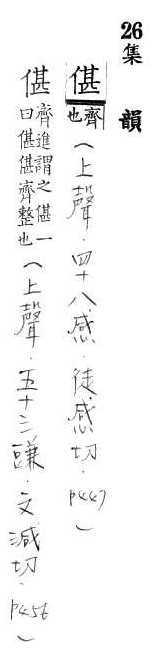 26集韻
偡齊也（上聲．四十八感．徒感切．P447）
偡齊進謂之偡一曰偡偡齊整也（上聲．五十三豏．文減切．P456）